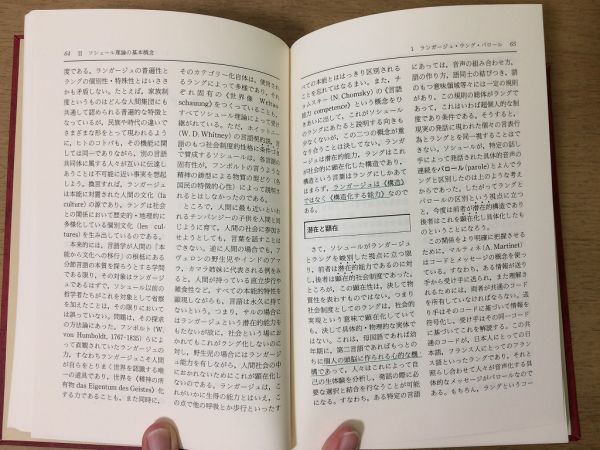 64 Ⅱ ソシュール理論の基本概念
度である。ランガージュの普遍性と
ラングの個別性・特殊性とはいささ
かも矛盾しない。たとえば、家族制
度というものはどんな人間集団にも
共通して認められる普遍的な特徴と
なっているが、民族や時代の違いで
さまざまな形をとって現われるよう
に、ヒトのコトバも、その機能に関
しては同一でありながら、別の言語
共同体に属する人々が互いに伝達し
あうことは不可能に近い事実を想起
しよう。換言すれば、ランガージュは
本能に対置された人間の文化 (la
culture) の源であり、ラングは社会
との関係において歴史的・地理的に
多様化している個別文化 (les cul-
tures) を生み出しているのである。
本来的には、言語学が人間の「本
能から文化への移行」の根柢にある
分節言語の本質を探ろうとする学問
である限り、その対象はランガージ
ュであるはずで、ソシュール以前の
哲学者たちがこれを対象として省察
を加えたことは、その限りにおいて
は誤っていない。問題は、その探求
の方法論にあった。フンボルト (W.
von Humboldt, 1767-1835) らによ
って直観されていたランガージュの
力、すなわちランガージュこそ人間が
自らをとりまく世界を認識する唯一
の道具であり、世界を《精神の所
有物 das Eigentum des Geistes》化
する力であることも、また同時に、
そのカテゴリー化自体は、使用され
るラングによって多様であり、それ
ぞれ固有の《世界像 Weltan-
schauung》をつくっていることも、
すべてソシュール理論によって受け
継がれている。ただ、ホイットニー
(W. D. Whitney) の言語契約説、言
語のもつ社会制度的性格に条件つき
で賛成するソシュールは、各言語の
固有性が、フンボルトの言うような
精神の鋳型による物質の型どり (各
国民の特徴的心性) によって説明さ
れるとはしなかったのである。
ところで、人間に最も近いといわ
れるチンパンジーの子供を人間と同
じように育て、人間の社会に参加さ
せようとしても、言葉を話すことは
できない。逆に人間の場合でも、ア
ヴェロンの野生児やインドのアマ
ラ、カマラ姉妹に代表される例をみ
ると、人間が持っている直立歩行や
雑食性など、すべての本能的特性を
顕現しながらも、言語は永久に持て
ないという。つまり、サルの場合に
はランガージュという潜在的能力を
もたないが故に、社会という場にお
かれてもこれがラング化しないのに
対し、野生児の場合にはランガージ
ュ能力を有しながら、人間社会の中
におかれないためにこれが顕在化し
ないのである。ランガージュは、こ
れがいかに生得の能力とはいえ、こ
の点で他の呼吸とか歩行といったす
1 ランガージュ・ラング・パロール 65
べての本能とははっきり区別される
ことを忘れてはなるまい。また、チ
ョムスキー (N. Chomsky) の《言語
能力 competence》という概念をひ
きあいに出して、これがソシュール
のラングにあたると説明する向きも
少なくないが、この二つの概念が重
なり合うことは決してない。ランガ
ージュは潜在的能力、ラングはこれ
が社会的に顕在化した構造であり、
構造という言葉はラングにしかあて
はまらず、ランガージュは《構造》
ではなく《構造化する能力》なので
ある。
潜在と顕在
さて、ソシュールがランガージュ
とラングを峻別した視点に立つ限
り、前者は潜在的能力であるのに対
し、後者は顕在的社会制度であった。
ところが、この顕在性は、決して物
質性を表わすものではない。つまり
社会制度としてのラングは、社会的
実現という意味で顕在化していて
も、決して具体的・物理的な実体で
はない。これは、母国語であれば幼
年期に、第二言語であればもっとの
ちに個人の頭脳に作られる心的な機
構であって、人々はこれによって自
己の生体験を分析し、発話の際に必
要な選択と結合を行なうことが可能
になる。すなわち、ある特定の言語
にあっては、音声の組み合わせ方、
語の作り方、語同士の結びつき、語
のもつ意味領域等々には一定の規則
があり、この規則の総体がラングで
あって、これはいわば超個人的な制
度であり条件である。そうすると、
現実の発話に現われた個々の言表行
為とラングとを同一視することはで
きない。ソシュールが、特定の話し
手によって発話された具体的音声の
連続をパロール (parole) とよんでラ
ングと区別したのは上のような考え
からであった。したがってラングと
パロールの区別という視点に立つ
と、今度は前者が潜在的構造であり
後者はこれを顕在化し具体化したも
のということになろう。
この関係をより明確に把握するた
めに、マルティネ (A. Martinet) は
コードとメッセージの概念を使って
いる。すなわち、ある情報が送り
手から受け手に送られ、また理解さ
れるためには、両者が共通のコード
を所有していなければならない。送
り手はそのコードに基づいて情報を
符号化し、受け手は同一のコード
に基づいてこれを解読する。この共
通のコードが、日本人にとっての日
本語、フランス人にとってのフラン
ス語といったラングであり、それと
照らし合わせて人々が音声化する具
体的なメッセージがパロールなので
ある。もちろん、ラングというコー